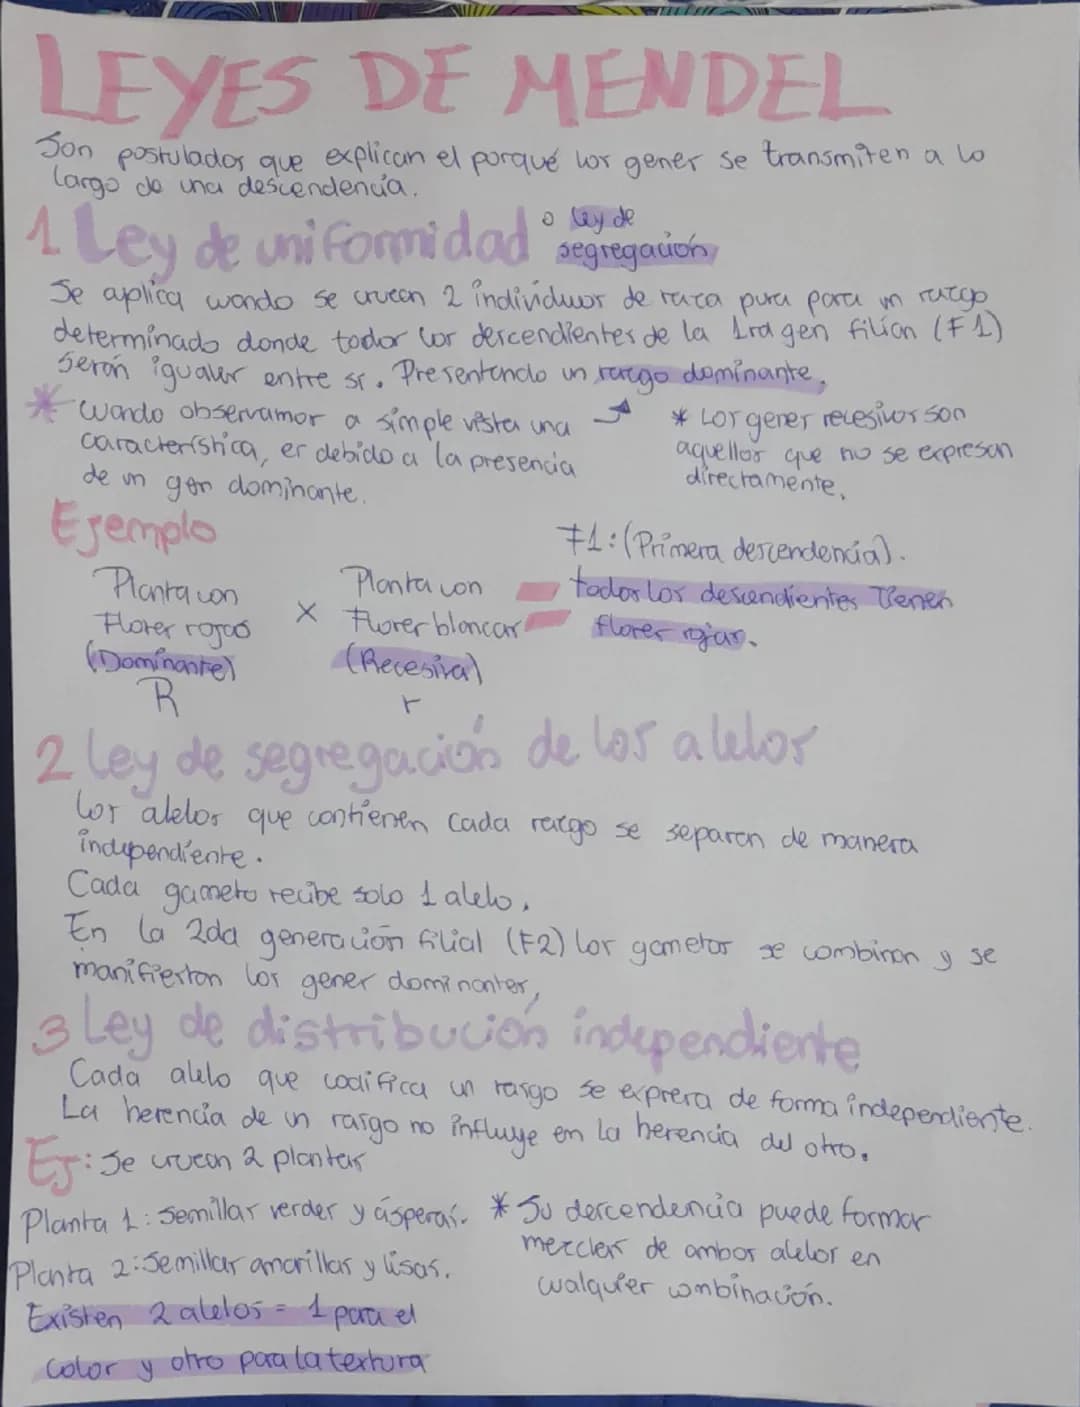 LEYES DE MENDEL
Son postulados que explican el porqué los genes se transmiten a lo
largo de una descendencia.
1 Ley de uniformidad o ley de
segregación
Se aplica cuando se crucan 2 individuos de raza pura para un razgo
determinado donde todos los descendientes de la 1ra gen filian (F1)
Serán iguales entre sí. Presentando un razgo dominante.
* Cuando observamos a simple vista una
característica, es debido a la presencia
de un gen dominante.
* Los genes recesivos son
aquellos que no se expresan
directamente.
Ejemplo
Planta con
Flores rojas
(Dominante)
R
×
Planta con
Flores blancas
(Recesiva)
r
=
F1: (Primera descendencia).
todos los descendientes Tienen
flores rojas.
2 Ley de segregación de los alelos
Los alelos que contienen cada razgo se separan de manera
independiente.
Cada gameto recibe solo 1 alelo.
En la 2da generación filial (F2) los gametos se combinan y se
manifiestan los genes dominantes,
3 Ley de distribución independiente
Cada alelo que codifica un rasgo se expresa de forma independiente.
La herencia de un rasgo no influye en la herencia del otro.
Ej: Se crucan 2 plantas
Planta 1: Semillas verdes y ásperas.
Planta 2: Semillas amarillas y lisas.
Existen 2 alelos = 1 para el
color y otro para la textura
* Su descendencia puede formar
mezclas de ambos alelos en
cualquier combinación.